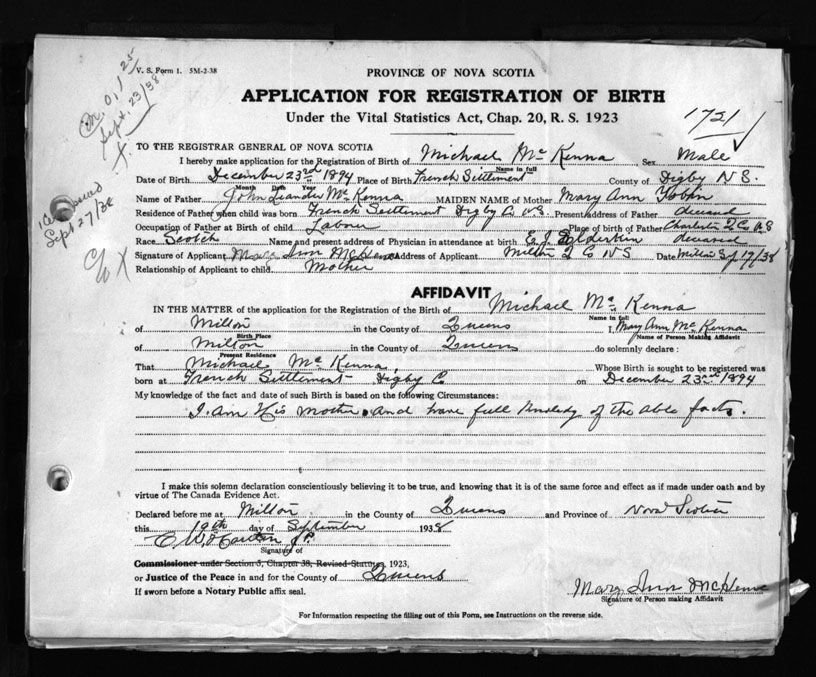 V. S. Form 1. 5M-2-38
PROVINCE OF NOVA SCOTIA
APPLICATION FOR REGISTRATION OF BIRTH
Under the Vital Statistics Act, Chap. 20, R. S. 1923
1721
Sept. 23/38
Sept 27/38
TO THE REGISTRAR GENERAL OF NOVA SCOTIA
I hereby make application for the Registration of Birth of Michael Mc Kenna Sex Male
Name in full
Date of Birth December 23rd 1894 Place of Birth French Settlement County of Digby N S.
Month Date Year
Name of Father John Leander Mc Kenna MAIDEN NAME of Mother Mary Ann
Residence of Father when child was born French Settlement Digby Co N.S. Present Address of Father deceased
Occupation of Father at Birth of child Labour Place of birth of Father
Race Scotch Name and present address of Physician in attendance at birth E. J. Elderkin deceased
Signature of Applicant Mary Ann McKenna Address of Applicant Milton Q Co N S Date Milton Sep 19/38
Relationship of Applicant to child Mother
AFFIDAVIT
IN THE MATTER of the application for the Registration of the Birth of Michael Mc Kenna
Name in full
of Milton in the County of Queens I, Mary Ann Mc Kenna
Birth Place Name of Person Making Affidavit
of Milton in the County of Queens do solemnly declare :
Present Residence
That Michael Mc Kenna, Whose Birth is sought to be registered was
born at French Settlement Digby Co on December 23rd 1894
My knowledge of the fact and date of such Birth is based on the following Circumstances:
I. am His Mother and have full Knoledg of the able facts.
I make this solemn declaration conscientiously believing it to be true, and knowing that it is of the same force and effect as if made under oath and by
virtue of The Canada Evidence Act.
Declared before me at Milton in the County of Queens and Province of Nova Scotia
this 19th day of September 1938
J.P.
Signature of
Commissioner under Section 5, Chapter 38, Revised Statutes, 1923,
or Justice of the Peace in and for the County of Queens
If sworn before a Notary Public affix seal.
Mary Ann McKenna
Signature of Person making Affidavit
For Information respecting the filling out of this Form, see Instructions on the reverse side.